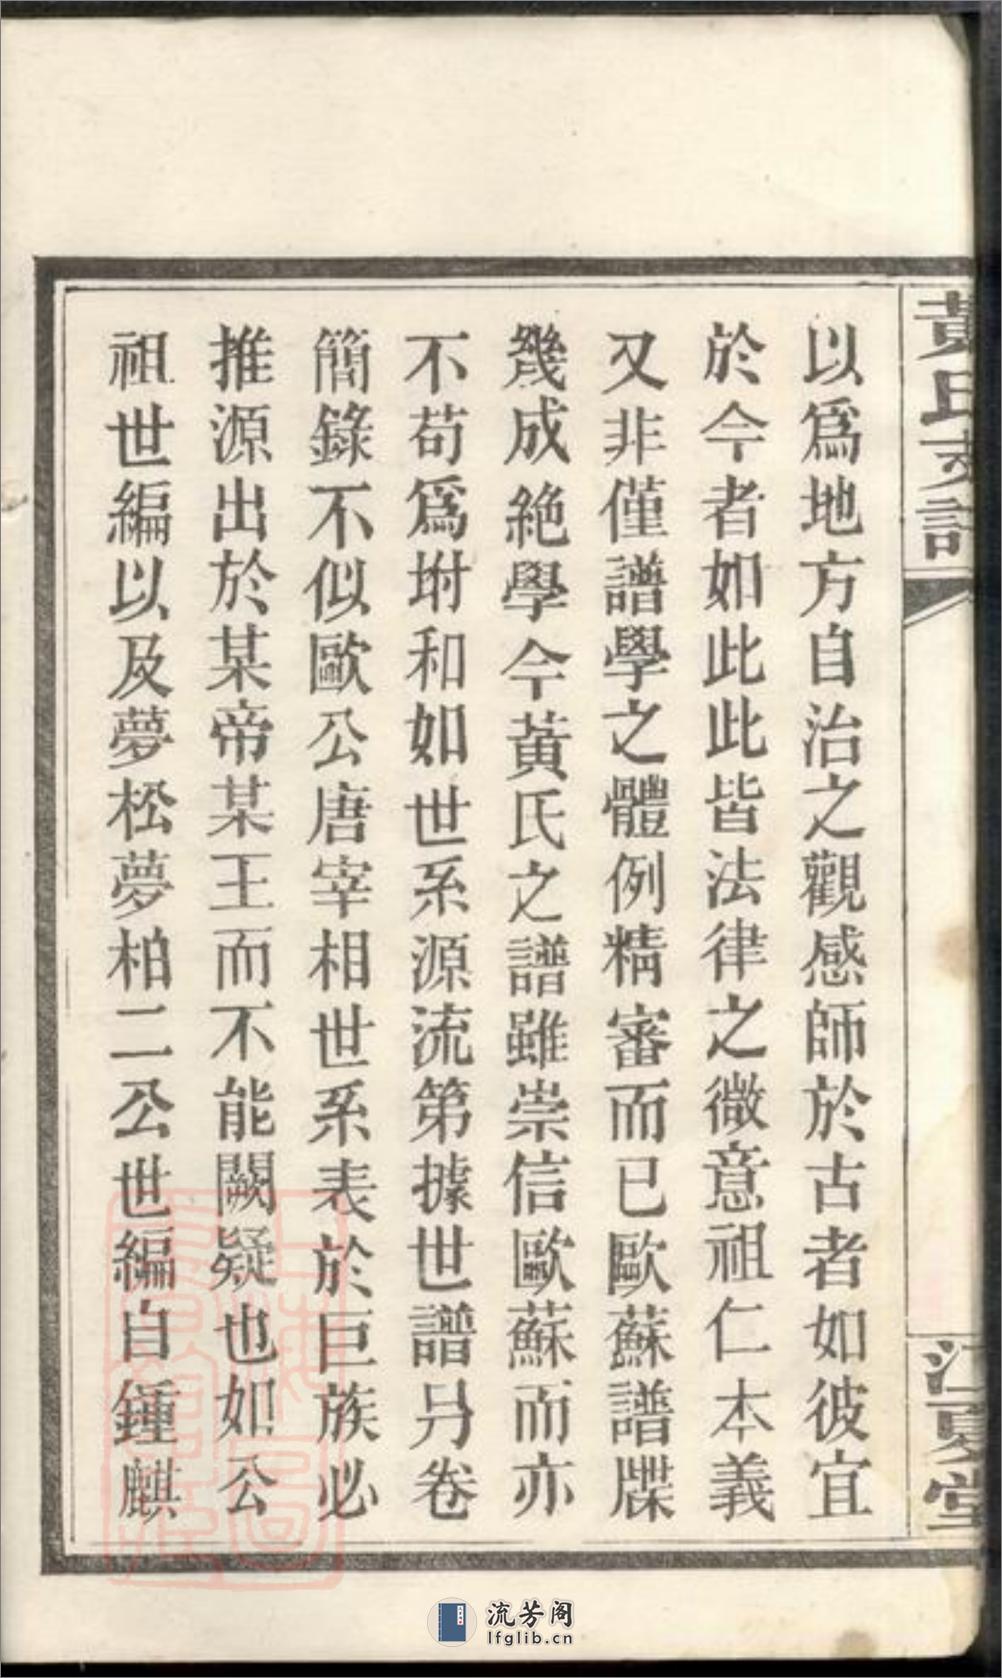 黃氏支譜
江夏堂
以爲地方自治之觀感師於古者如彼宜
於今者如此此皆法律之微意祖仁本義
又非僅譜學之體例精審而已歐蘇譜牒
幾成絕學今黃氏之譜雖崇信歐蘇而亦
不苟爲坿和如世系源流第據世譜另卷
簡錄不似歐公唐宰相世系表於巨族必
推源出於某帝某王而不能闕疑也如公
祖世編以及夢松夢柏二公世編自鍾麒
流芳阁
lfglib.cn